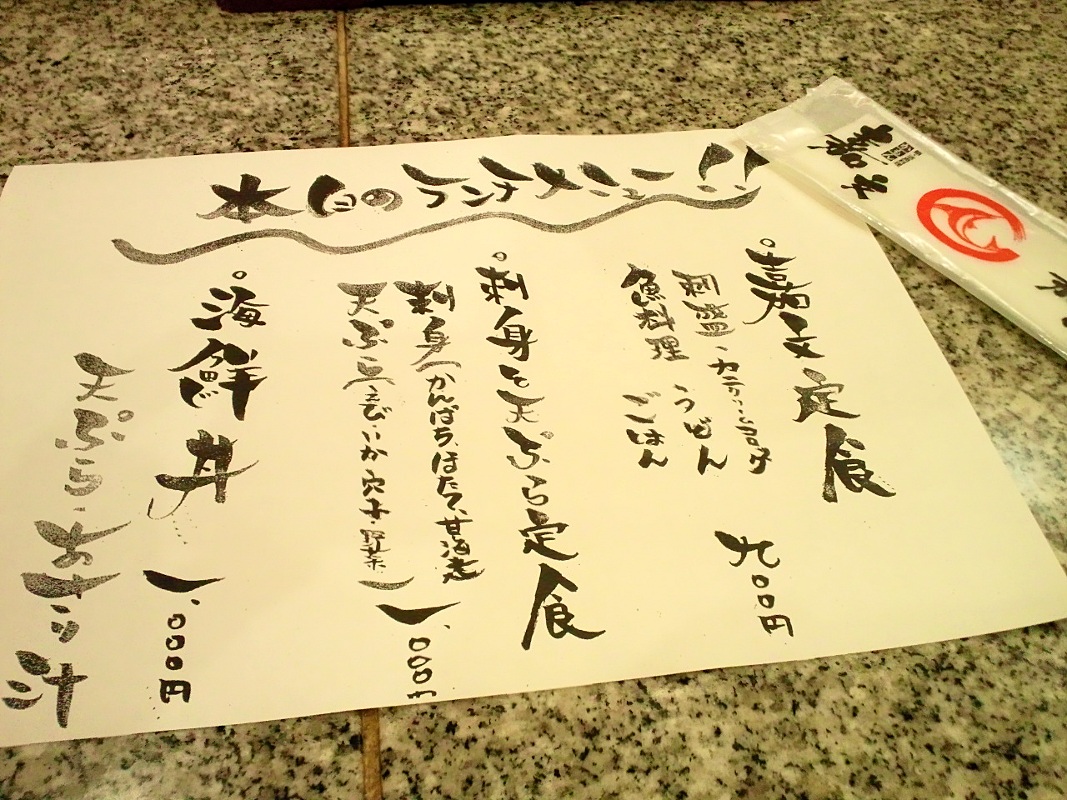 本日のランチメニュー
嘉文定食
刺盛、
うどん
魚料理 ごはん
九〇〇円
刺身と天ぷら定食
刺身(かんぱち、ほたて、甘海老
天ぷら(えび・いか・穴子・野菜)
一、〇〇〇円
海鮮丼 一、〇〇〇円
天ぷら・あさり汁
嘉文